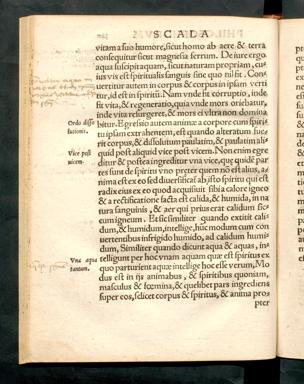 SCALA
vitam a suo humore, sicut homo ab aere & terra
consequitur sicut magnesia ferrum. De iure ergo
aqua suscipit aquam, sicut naturam propriam, cu-
ius vis est spiritualis sanguis sine quo nil fit. Con-
uertitur autem in corpus & corpus in ipsam verti
tur, id est in spiritū. Nam vnde fit corruptio, inde
fit vita, & regeneratio, quia vnde mors oriebatur,
inde vita resurgeret, & mors vltra non domina
Ordo disso
lutionis.
bitur. Egressio autem animæ a corpore cum spiri-
tu ipsam extrahentem, est quando alteratum fue-
rit corpus, & dissolutum paulatim, & paulatim ali-
Vice post
vicem.
quid post aliquid vice post vicem. Non enim egre
ditur & postea ingreditur vna vice, que quidē par
tes sunt de spiritu vno præter quem nō est alius, a-
nima est ex eo sed diuersificat᷑ ab isto spiritu qui est
radix eius ex eo quod acquisiuit sibi a calore igneo
& a rectificatione facta est calida, & humida, in na
tura sanguinis, & aer qui prius erat calidum sic-
cum igneum. Et sic similiter quando extitit cali-
dum, & humidum, intellige, huc modum cum con
uertentibus infrigido humido, ad calidum humi-
dum, Similiter quando dicunt aqua & aquas, in-
Vna aqua
tantum.
telligunt per hoc vnam quam quæ est spiritus ex
quo parturient aquæ intellige hoc esse verum, Mo
dus est in ijs animabus, & spiritibus quoniam,
masculus & fœmina, & quelibet pars ingrediens
super eos, scilicet corpus & spiritus, & anima pros
pter